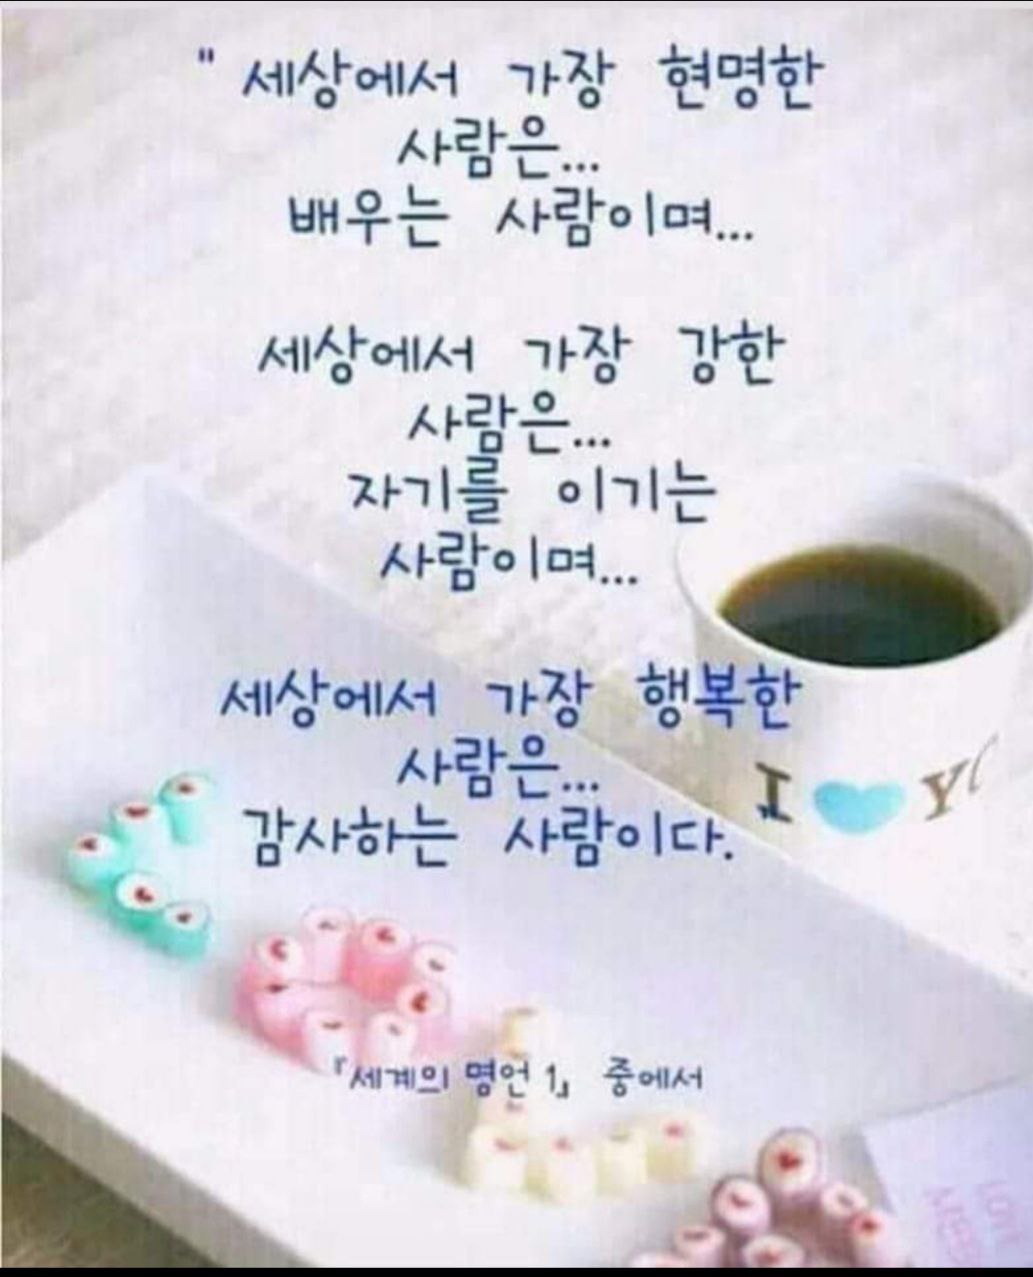 " 세상에서 가장 현명한
사람은...
배우는 사람이며...
세상에서 가장 강한
사람은...
자기를 이기는
사람이며...
세상에서 가장 행복한
사람은...
감사하는 사람이다.
I
『세계의 명언 1』 중에서